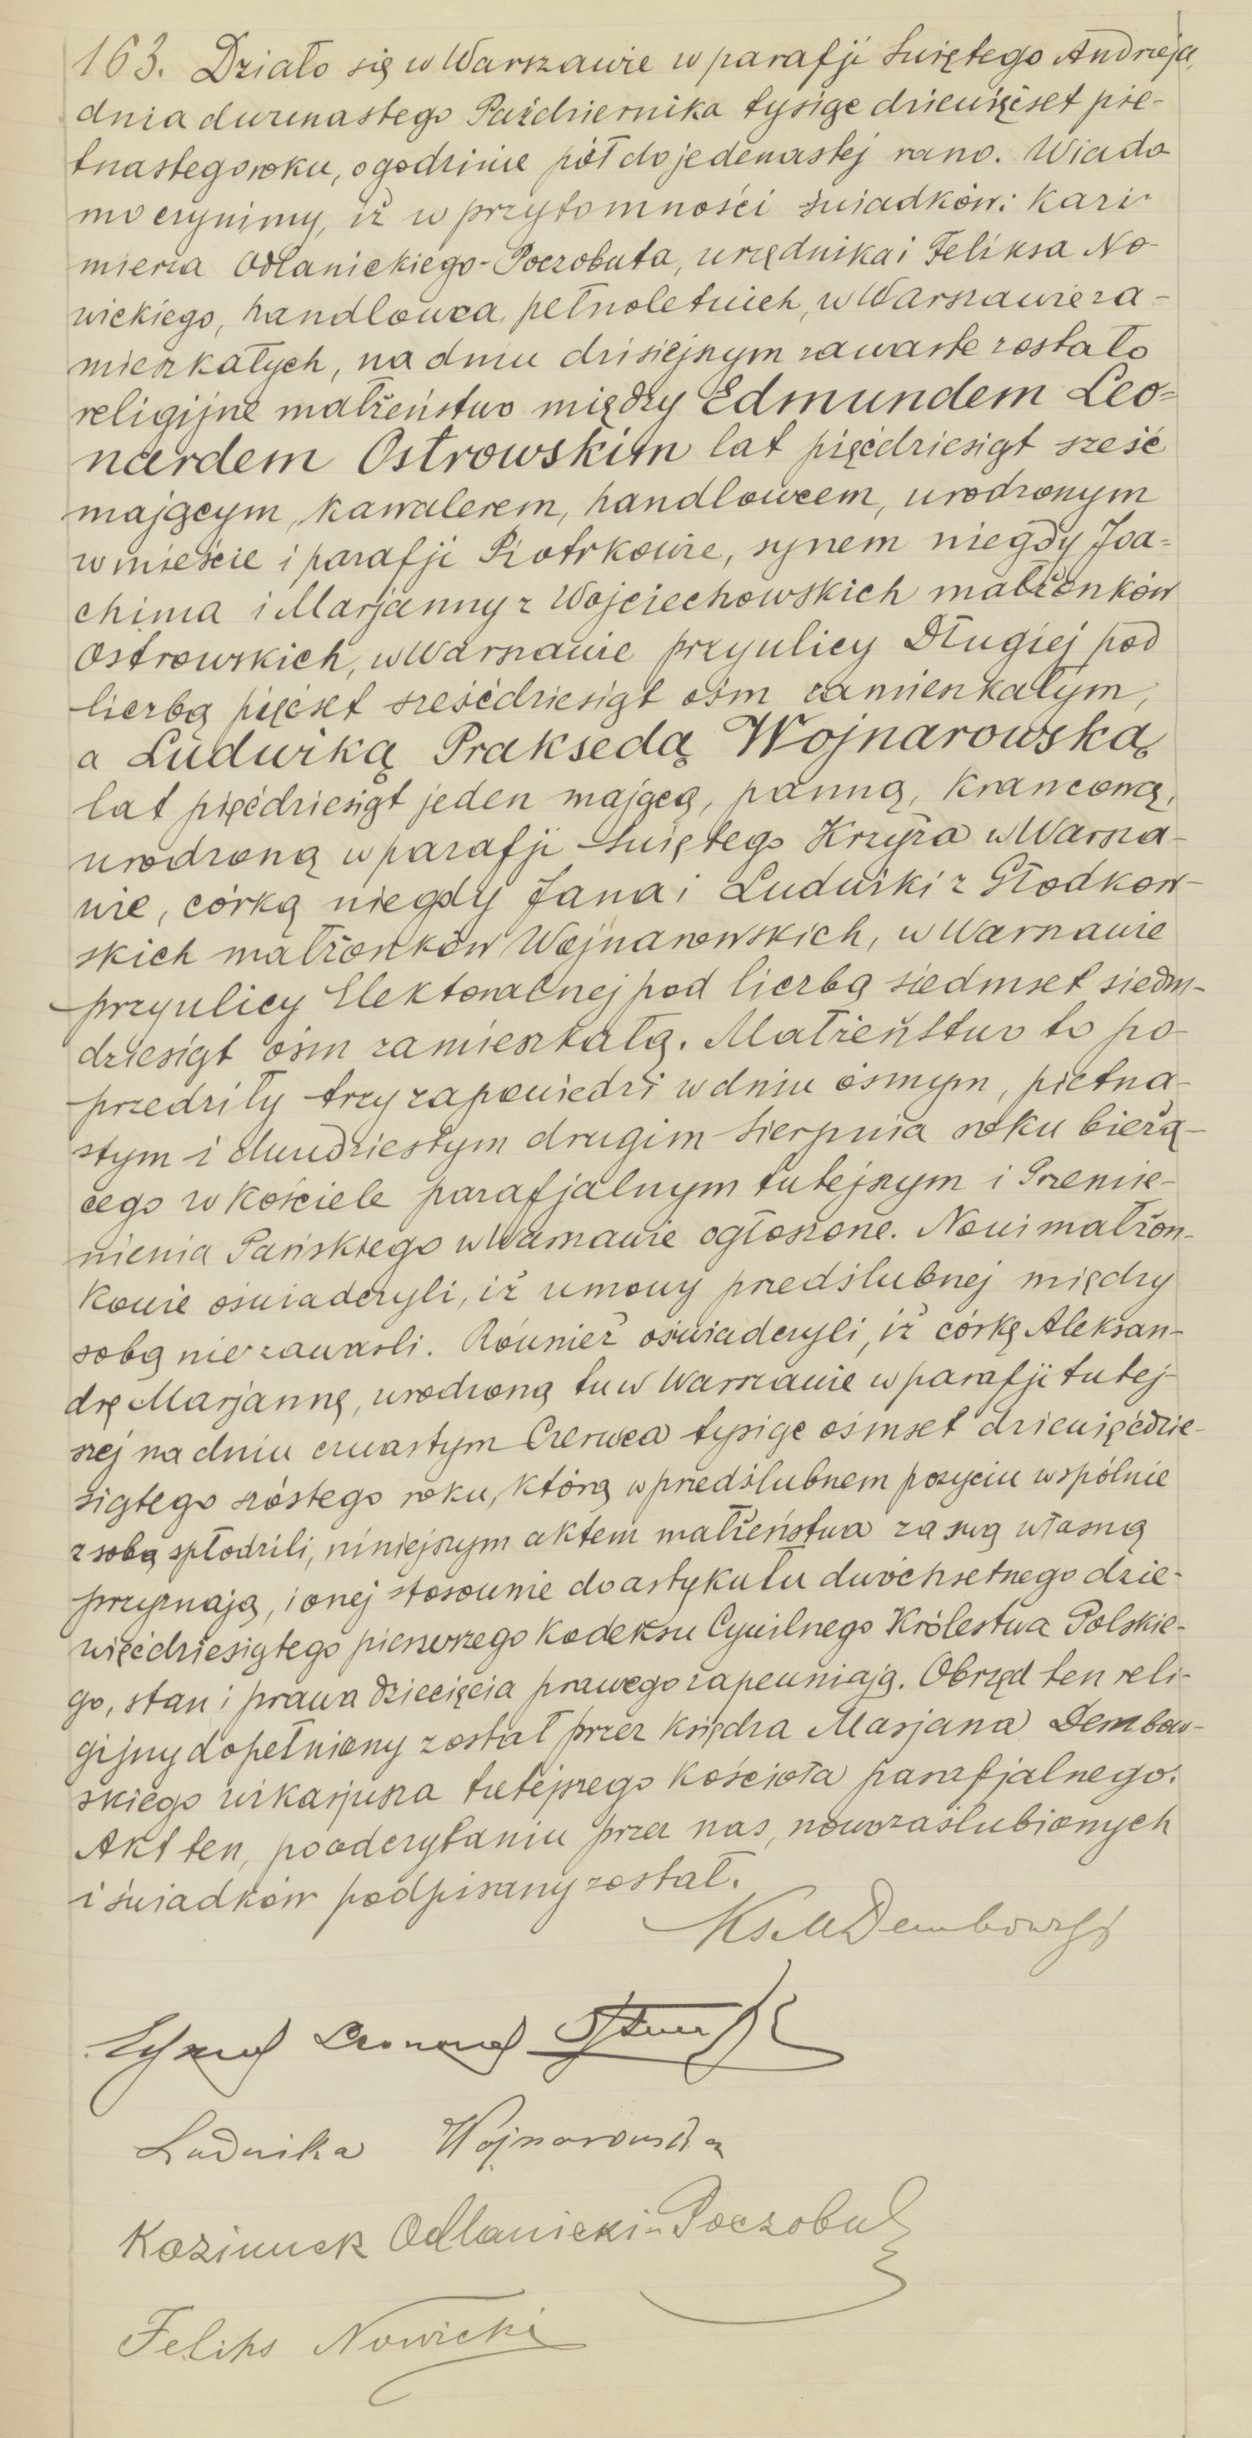 163. Działo się w Warszawie w parafji Świętego Andrzeja,
dnia dwunastego Października tysiąc dziewięćset pię-
tnastego roku, o godzinie pół do jedenastej rano. Wiado
mo czynimy, iż w przytomności świadków: Kazi-
mierza Odlanickiego-Poczobuta, urzędnika i Feliksa No-
wickiego, handlowca, pełnoletnich, w Warszawie za-
mieszkałych, na dniu dzisiejszym zawarte zostało
religijne małżeństwo między Edmundem Leo-
nardem Ostrowskim lat pięćdziesiąt sześć
mającym, kawalerem, handlowcem, urodzonym
w mieście i parafji Piotrkowie, synem niegdy Joa-
chima i Marjanny z Wojciechowskich małżonków
Ostrowskich, w Warszawie przy ulicy Długiej pod
liczbą pięćset sześćdziesiąt ośm zamieszkałym,
a Ludwiką Praksedą Wojnarowską
lat pięćdziesiąt jeden mającą, panną, krawcową,
urodzoną w parafji Świętego Krzyża w Warsza-
wie, córką niegdy Jana i Ludwiki z Głodkow-
skich małżonków Wojnarowskich, w Warszawie
przy ulicy Elektoralnej pod liczbą siedmset siedm-
dziesiąt ośm zamieszkałą. Małżeństwo to po-
przedziły trzy zapowiedzi w dniu ósmym, piętna-
stym i dwudziestym drugim Sierpnia roku bieżą-
cego w kościele parafjalnym tutejszym i Przemie-
nienia Pańskiego w Warszawie ogłoszone. Nowi małżon-
kowie oświadczyli, iż umowy przedślubnej między
sobą nie zawarli. Również oświadczyli, iż córkę Aleksan-
drę Marjannę, urodzoną tu w Warszawie w parafji tutej-
szej na dniu czwartym Czerwca tysiąc ośmset dziewięćdzie-
siątego szóstego roku, którą w przedślubnem pożyciu wspólnie
z sobą spłodzili, niniejszym aktem małżeństwa za swą własną
przyznają, i onej stosownie do artykułu dwóchsetnego dzie-
więćdziesiątego pierwszego Kodeksu Cywilnego Królestwa Polskie-
go, stan i prawa dziecięcia prawego zapewniają. Obrzęd ten reli-
gijny dopełniony został przez księdza Marjana Dembow-
skiego wikarjusza tutejszego kościoła parafjalnego.
Akt ten, po odczytaniu przez nas, nowozaślubionych
i świadków podpisany został.
Ks. M Dembowski
Edmund Leonard Ostrowski
Ludwika Wojnarowska
Kazimierz Odlanicki-Poczobut
Feliks Nowicki